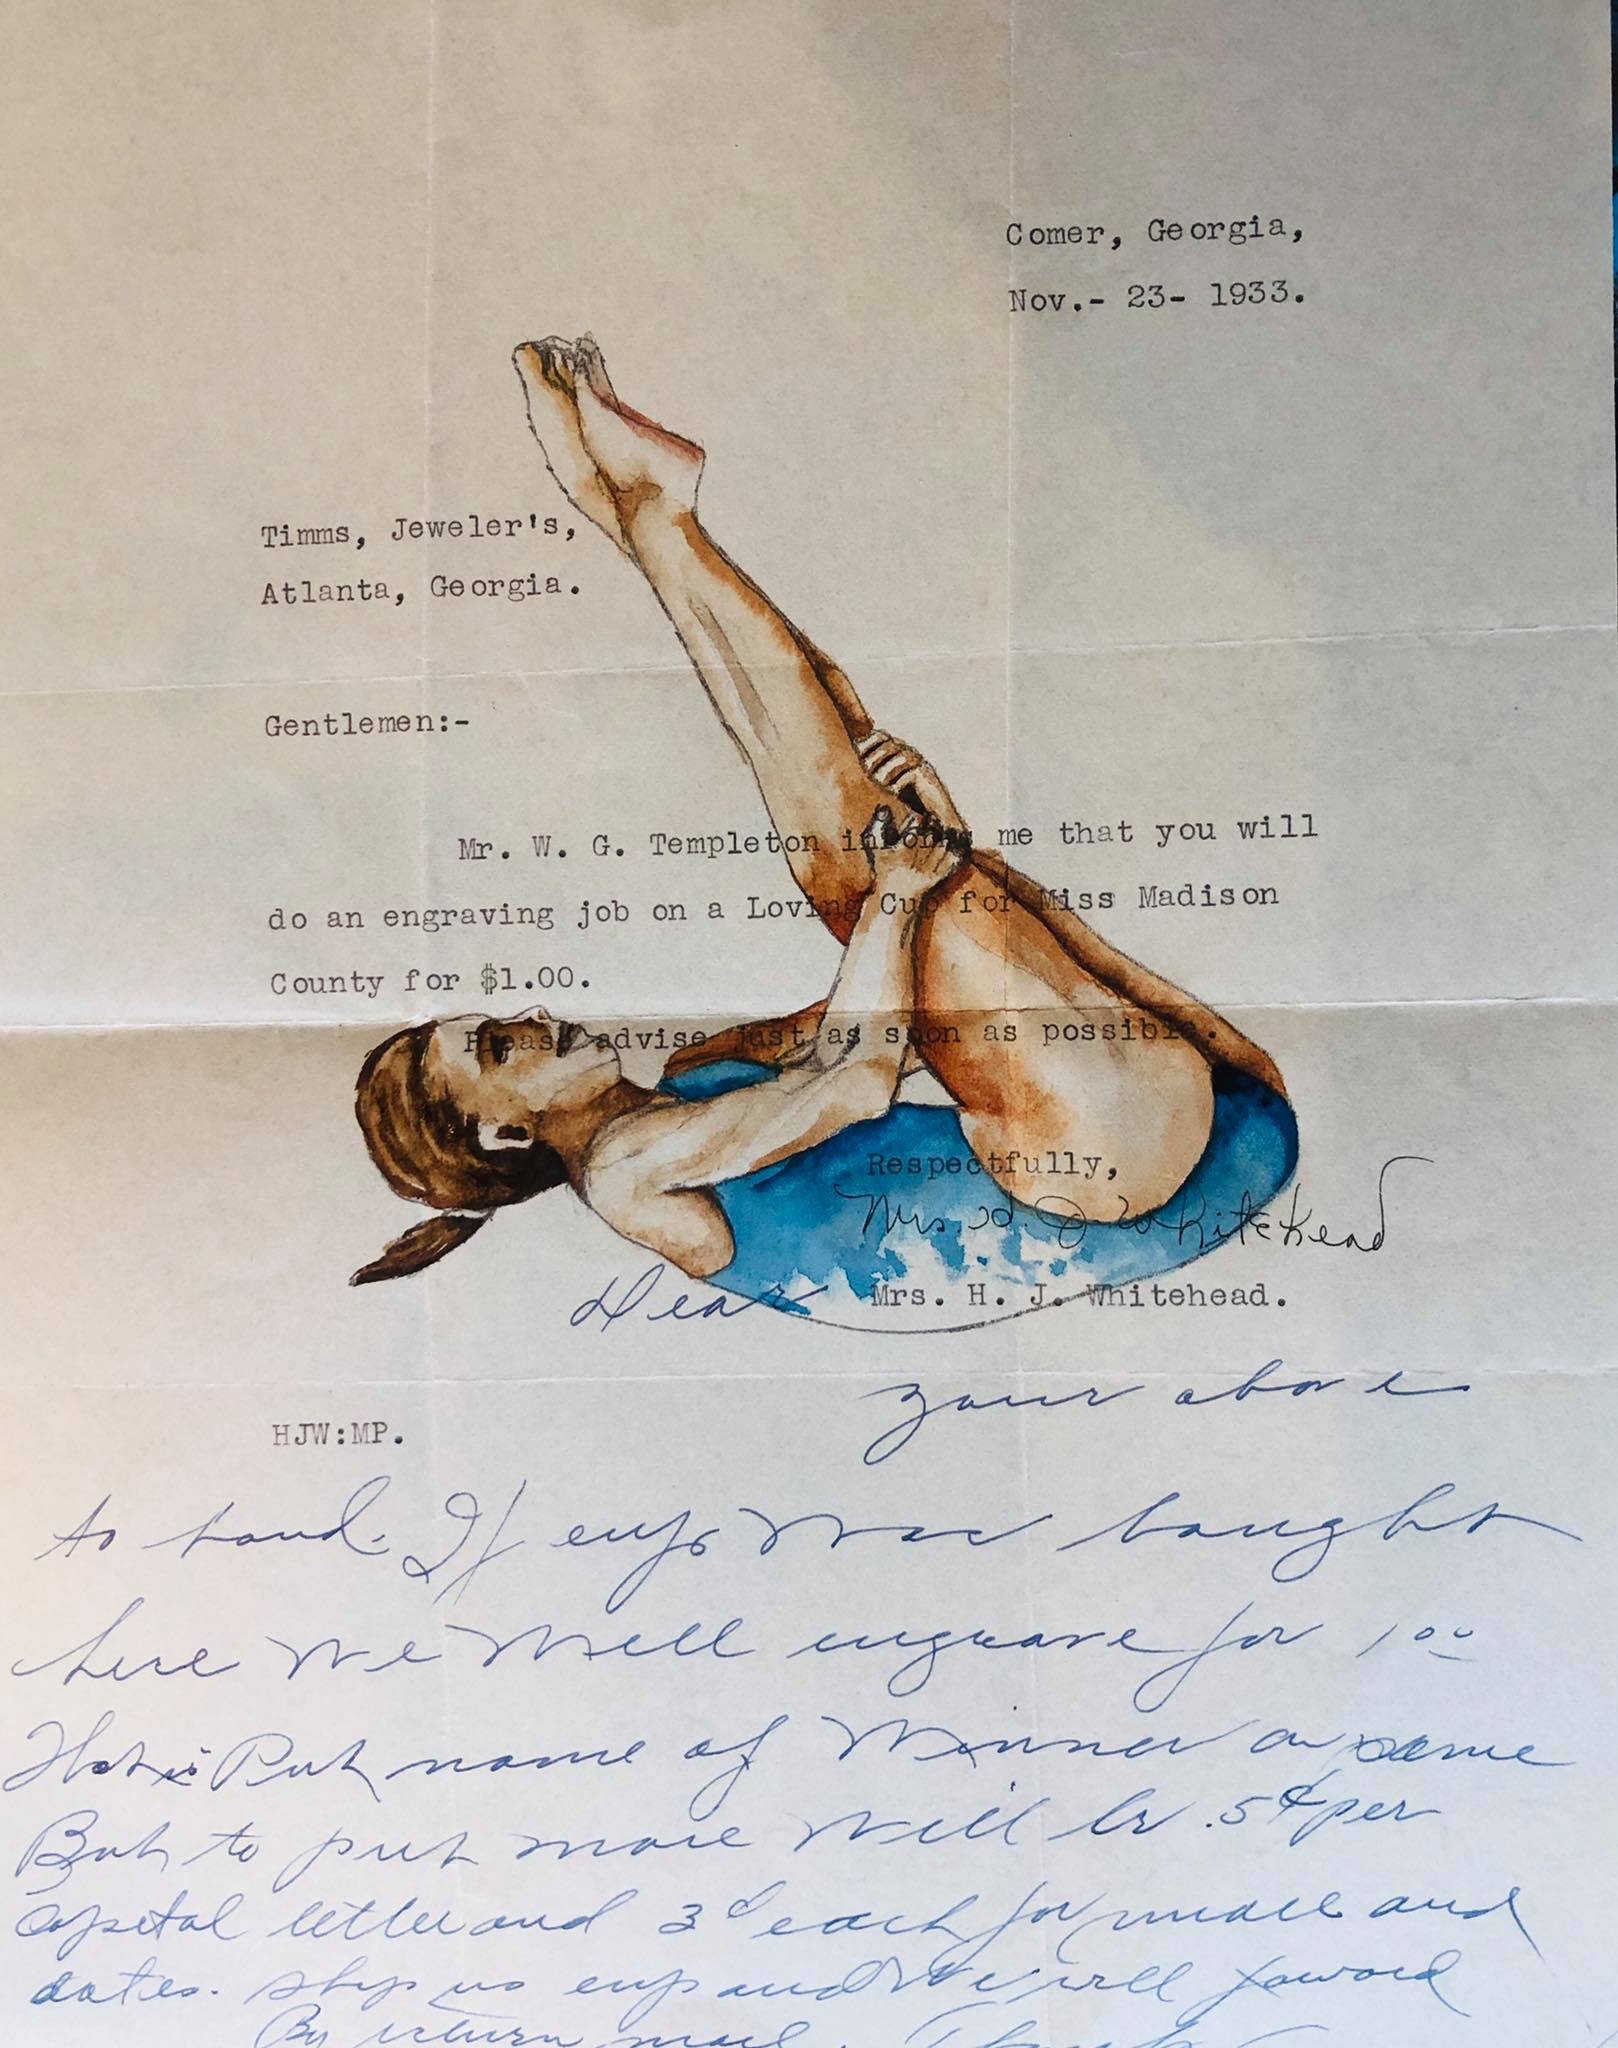 Comer, Georgia,
Nov.- 23- 1933.
Timms, Jeweler's,
Atlanta, Georgia.
Gentlemen:-
Mr. W. G. Templeton informs me that you will
do an engraving job on a Loving Cup for Miss Madison
County for $1.00.
Please advise just as soon as possible.
Respectfully,
Mrs. H. J. Whitehead
Dear Mrs. H. J. Whitehead.
your above
HJW:MP.
to hand. If cup was bought
here we will engrave for 1 00
Put name of Winner on same
But to put more will be .5¢ per
Capital letter and 3¢ each for small and
dates. Ship us cup and we will forward
By return mail.